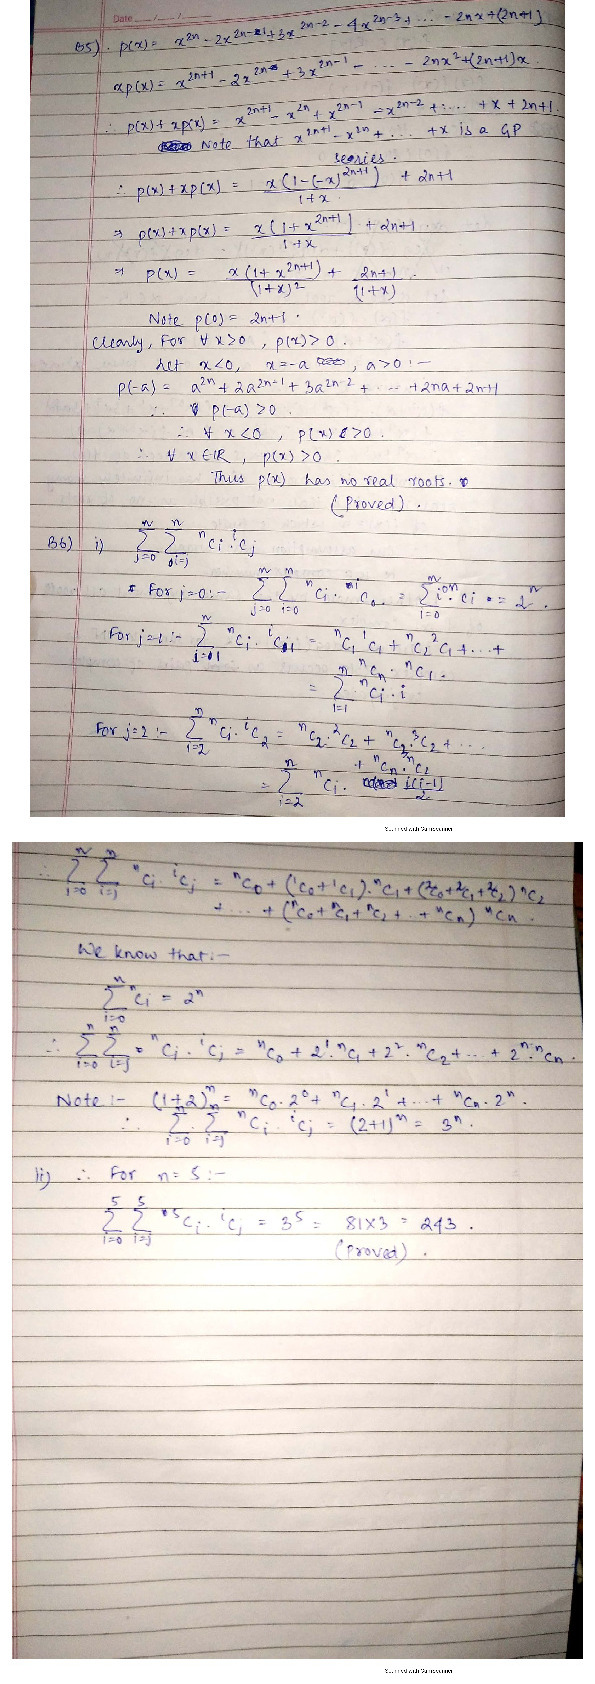 Date __/__/__
B5). p(x) = x^{2n} - 2x^{2n-1} + 3x^{2n-2} - 4x^{2n-3} + ... - 2nx + (2n+1)
xp(x) = x^{2n+1} - 2x^{2n} + 3x^{2n-1} - ... - 2nx^2 + (2n+1)x.
∴ p(x) + xp(x) = x^{2n+1} - x^{2n} + x^{2n-1} - x^{2n-2} + ... + x + 2n+1.
Note that x^{2n+1} - x^{2n} + ... + x is a GP
series.
∴ p(x) + xp(x) = x(1-(-x)^{2n+1})/(1+x) + 2n+1
⇒ p(x) + xp(x) = x(1+x^{2n+1})/(1+x) + 2n+1.
⇒ p(x) = x(1+x^{2n+1})/(1+x)^2 + (2n+1)/(1+x).
Note p(0) = 2n+1.
Clearly, For ∀ x>0, p(x)>0.
Let x<0, x=-a, a>0 :-
p(-a) = a^{2n} + 2a^{2n-1} + 3a^{2n-2} + ... + 2na + 2n+1
∴ p(-a) >0.
∴ ∀ x<0, p(x) >0.
∴ ∀ x∈ℝ, p(x)>0.
Thus p(x) has no real roots.
(Proved).
B6) i) ∑_{j=0}^{n} ∑_{i=j}^{n} ⁿC_i · ⁱC_j
For j=0:- ∑_{j=0}^{n} ∑_{i=0}^{n} ⁿC_i · ⁱC_0 = ∑_{i=0}^{n} ⁿC_i = 2ⁿ.
For j=1:- ∑_{j=1}^{n} ⁿC_i · ⁱC_1 = ⁿC_1 ¹C_1 + ⁿC_2 ²C_1 + ... +
ⁿC_n · ⁿC_1.
= ∑_{i=1}^{n} ⁿC_i · i
For j=2:- ∑_{i=2}^{n} ⁿC_i · ⁱC_2 = ⁿC_2 · ²C_2 + ⁿC_3 · ³C_2 + ...
+ ⁿC_n · ⁿC_2
= ∑_{i=2}^{n} ⁿC_i · i(i-1)/2
Scanned with CamScanner
∴ ∑_{i=0}^{n} ∑_{i=j}^{n} ⁿC_i · ⁱC_j = ⁿC_0 + (¹C_0 + ¹C_1) · ⁿC_1 + (²C_0 + ²C_1 + ²C_2) ⁿC_2
+ ... + (ⁿC_0 + ⁿC_1 + ⁿC_2 + .. + ⁿC_n) ⁿC_n.
We know that:-
∑_{i=0}^{n} ⁿC_i = 2ⁿ
∴ ∑_{i=0}^{n} ∑_{i=j}^{n} ⁿC_i · ⁱC_j = ⁿC_0 + 2¹ · ⁿC_1 + 2² · ⁿC_2 + ... + 2ⁿ · ⁿC_n.
Note:- (1+2)ⁿ = ⁿC_0 · 2⁰ + ⁿC_1 · 2¹ + ... + ⁿC_n · 2ⁿ.
∴ ∑_{i=0}^{n} ∑_{i=j}^{n} ⁿC_i · ⁱC_j = (2+1)ⁿ = 3ⁿ.
ii) ∴ For n=5:-
∑_{i=0}^{5} ∑_{i=j}^{5} ⁵C_i · ⁱC_j = 3⁵ = 81×3 = 243.
(Proved).
Scanned with CamScanner